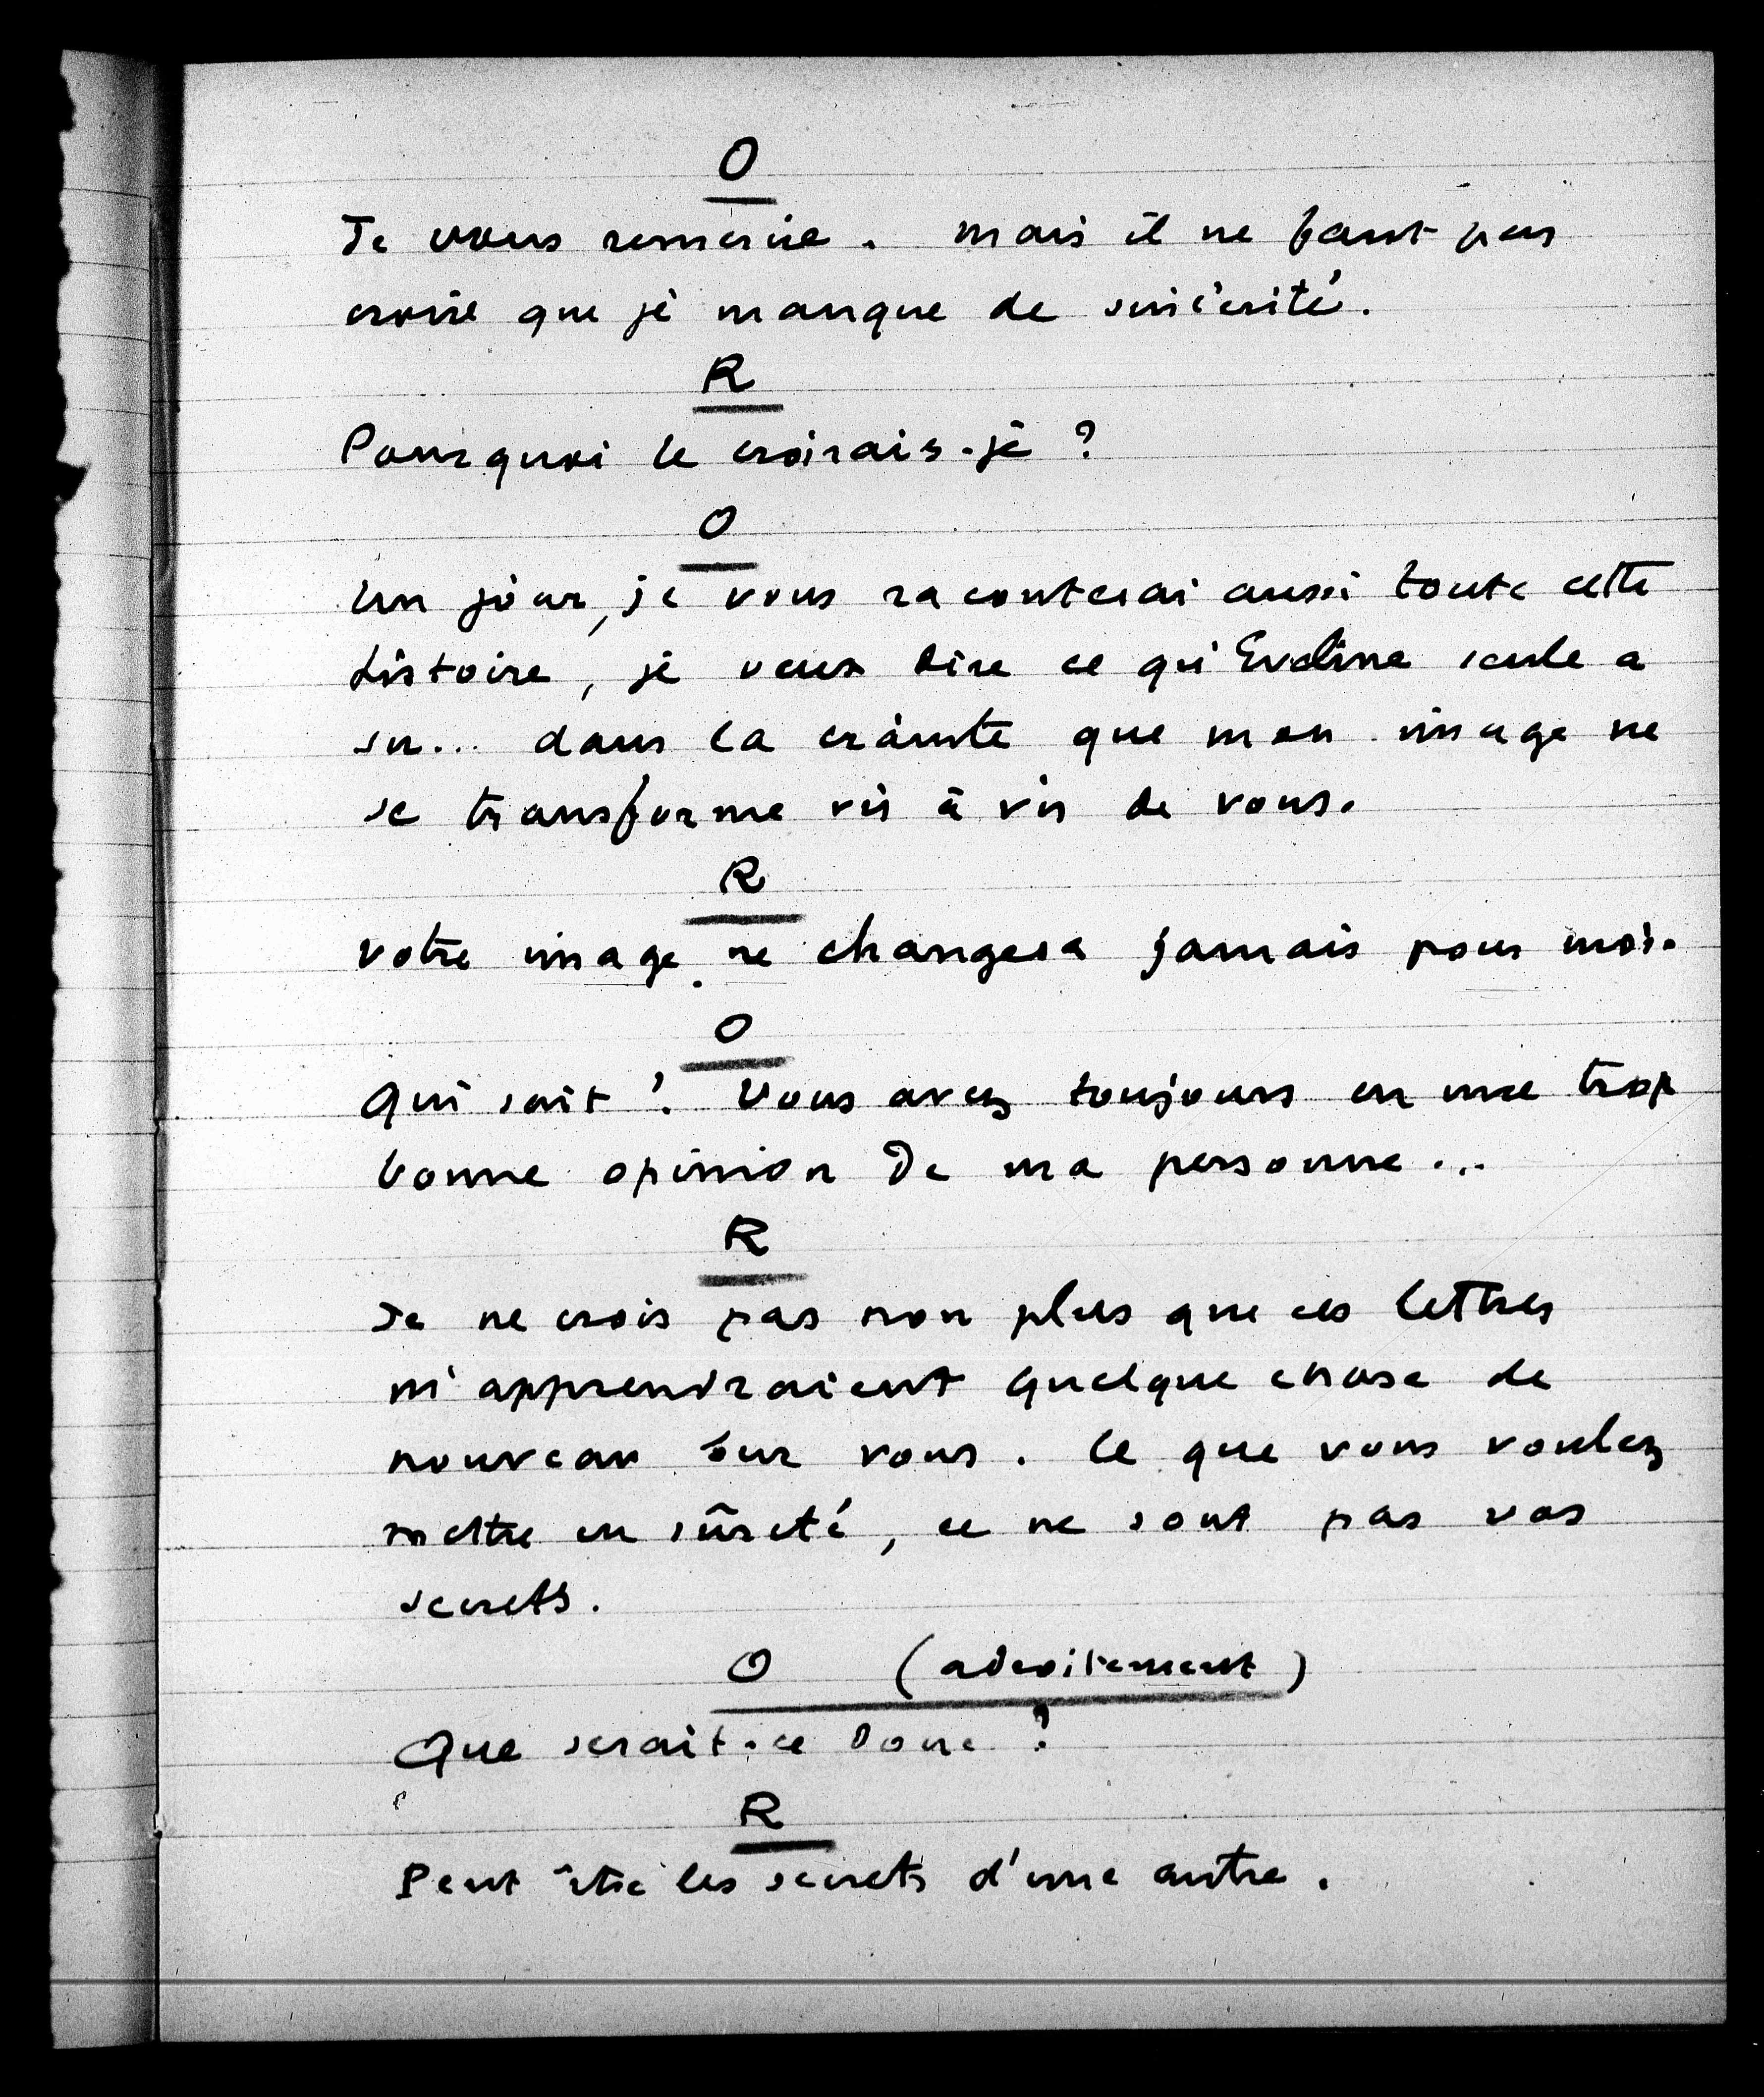 O
Je vous remercie. Mais il ne faut pas
croire que je manque de sincérité.
R
Pourquoi le croirais-je ?
O
Un jour, je vous raconterai aussi toute cette
histoire, je veux dire ce qu'Eveline seule a
su... dans la crainte que mon image ne
se transforme vis à vis de vous.
R
Votre image ne changera jamais pour moi.
O
Qui sait ? Vous avez toujours eu une trop
bonne opinion de ma personne...
R
Je ne crois pas non plus que ces lettres
m'apprendraient quelque chose de
nouveau sur vous. Ce que vous voulez
mettre en sûreté, ce ne sont pas vos
secrets.
O (adroitement)
Que serait-ce donc ?
R
Peut être les secrets d'une autre.